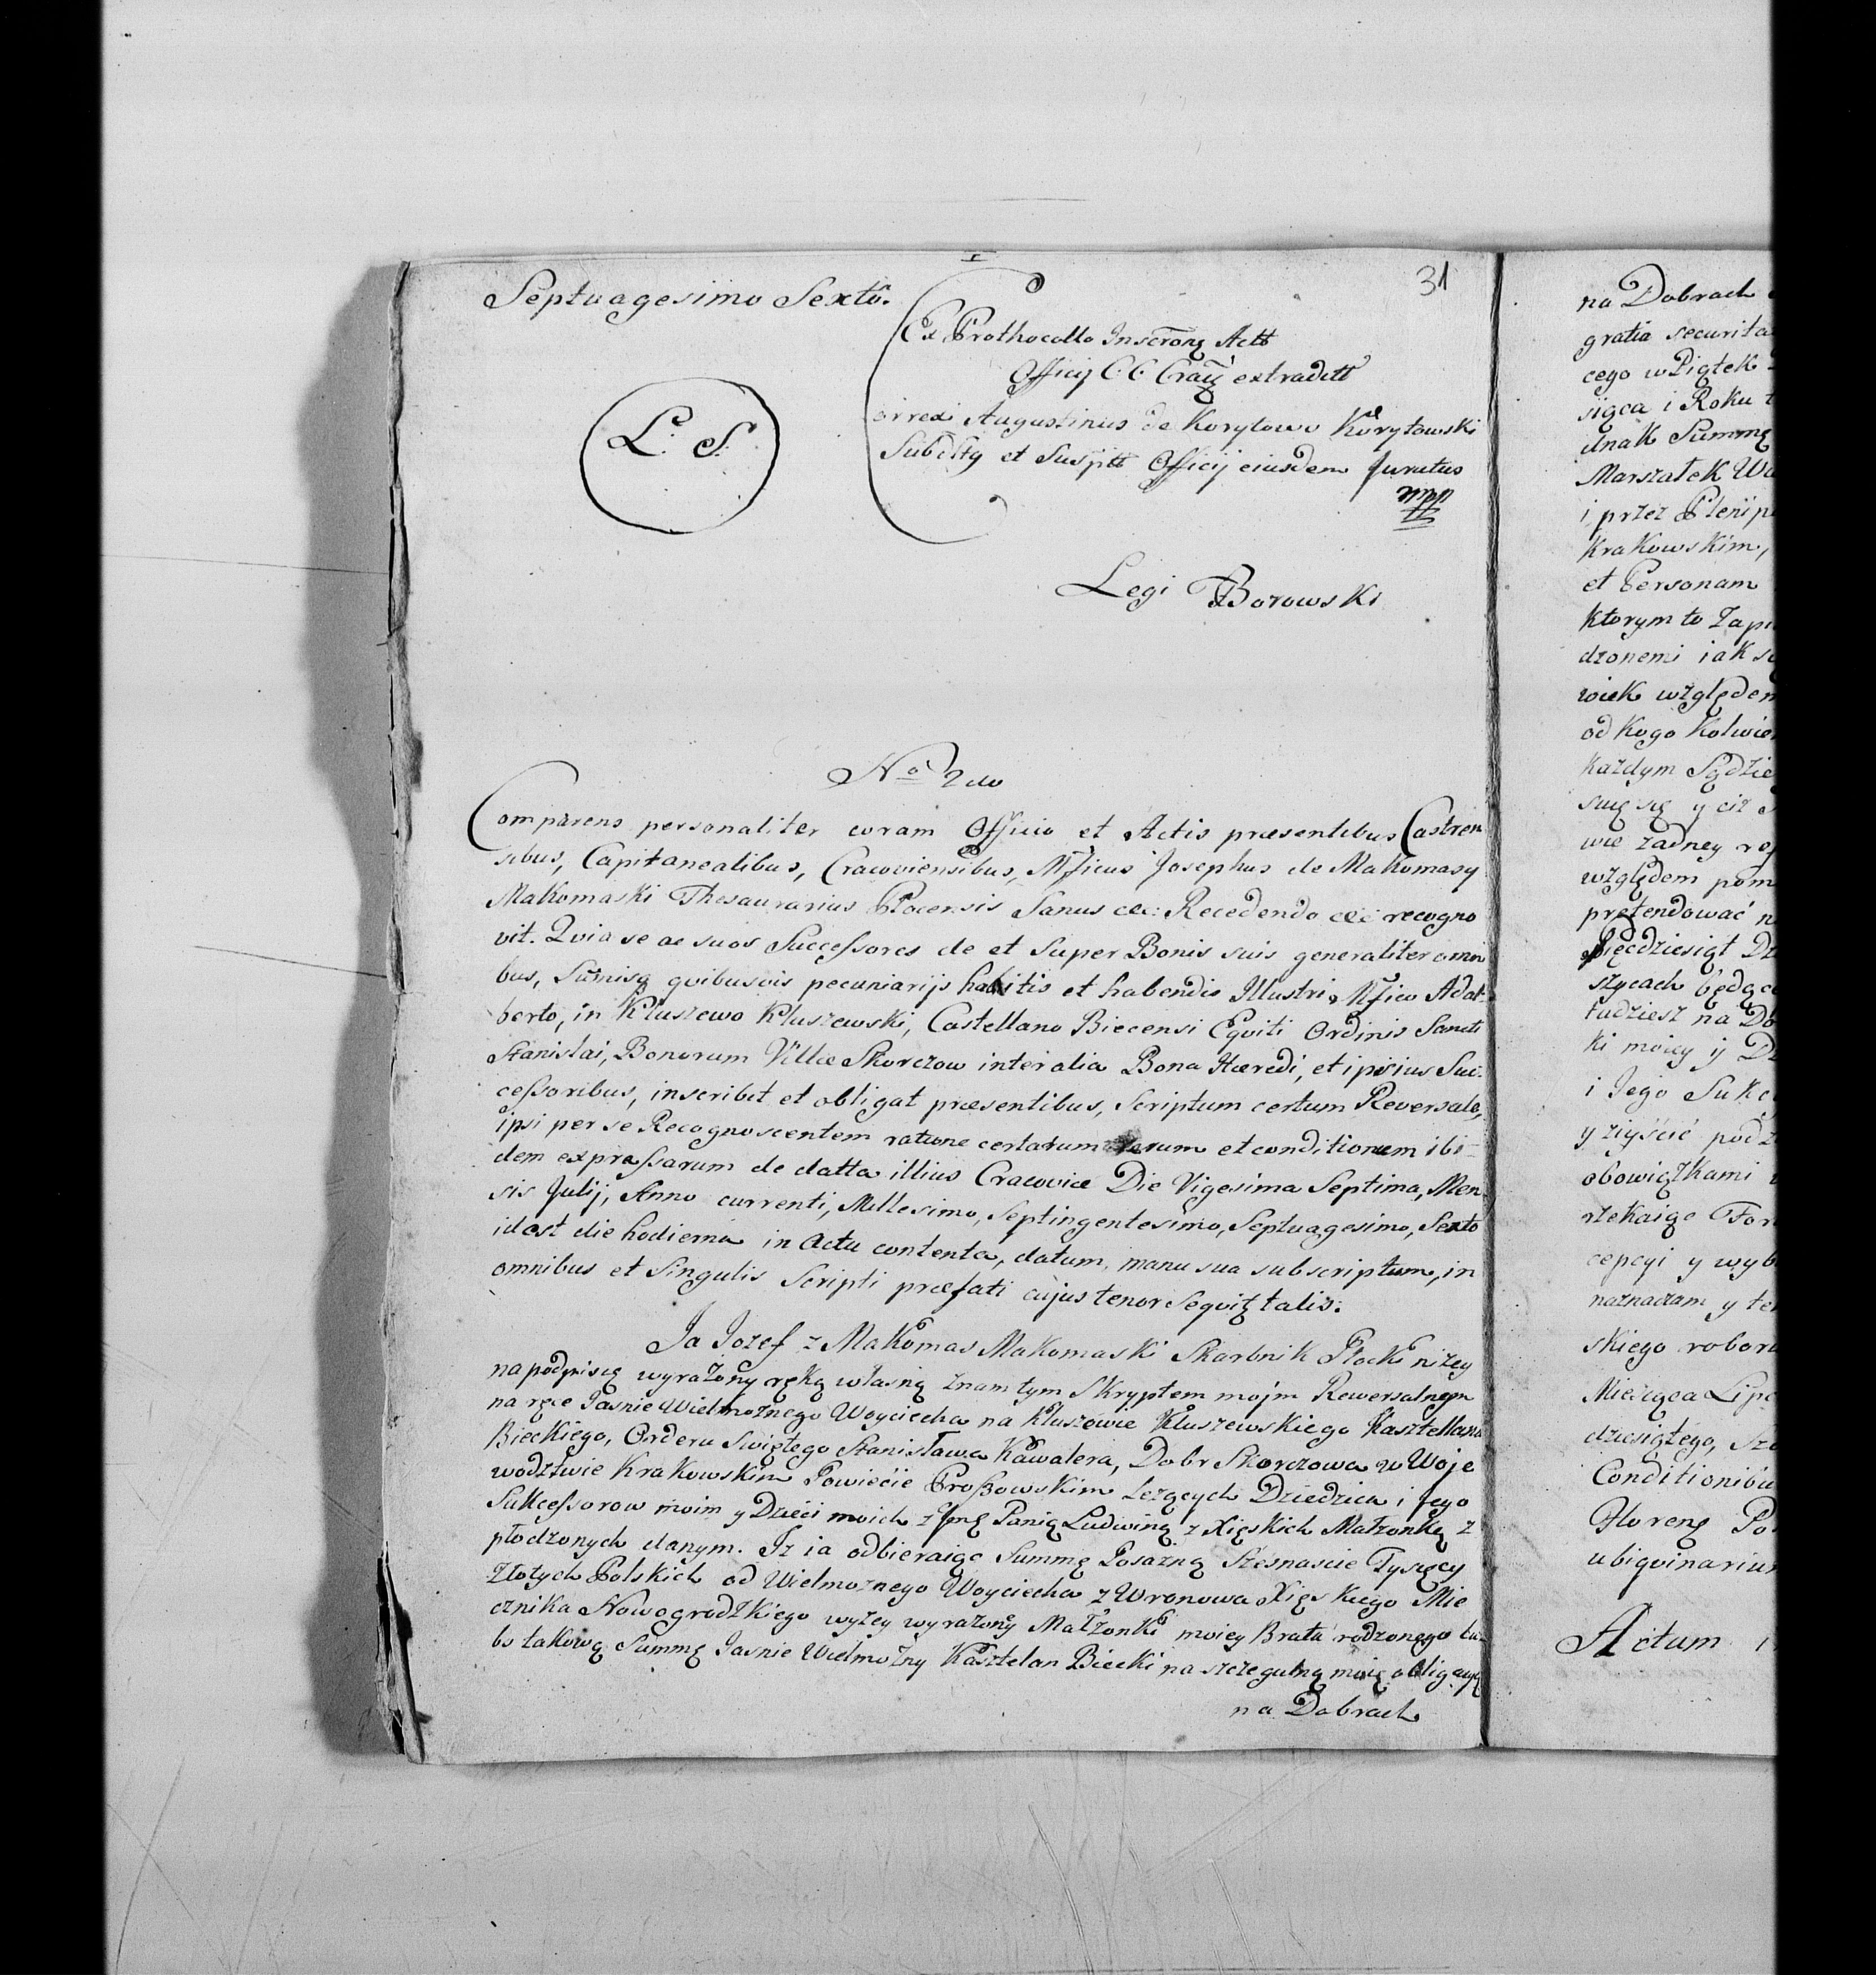 31
Septuagesimo Sexto.
Ex Prothocollo Inscroñ Actt
Officij C. C. Crac̃ extraditt
orrexi Augustinus de Korytowo Korytowski
et Suspitt Officij eiusdem Juratus
mpp
L. S.
Legi Borowski
No 2do
Comparens personaliter coram Officio et Actis præsentibus Castren
sibus, Capitanealibus, Cracoviensibus, Mficus Josephus de Makomasy
Makomaski Thesaurarius Plocensis Sanus etc: Recedendo etc: recogno
vit. Quia se ac suos Successores de et super Bonis suis generaliter omni
bus, Sumisq quibusvis pecuniarijs habitis et habendis Illustri Mfico Adal-
berto, in Kluszewo Kluszewski, Castellano Biecensi Equiti Ordinis Sancti
Stanislai, Bonorum Villæ Skorczow inter alia Bona Hæredi, et ipsius Suc-
cessoribus, inscribit et obligat præsentibus, Scriptum certum Reversale,
ipsi per se Recognoscentem ratione certarum rerum et conditionum ibi-
dem expressarum de datta illius Cracoviæ Die Vigesima Septima, Men-
sis Julij, Anno currenti, Millesimo, Septingentesimo, Septuagesimo, Sexto
idest die hodierna in Actu contenta, datum, manu sua subscriptum, in
omnibus et Singulis Scripti præfati cujus tenor sequitq talis:
Ja Jozef z Makomas Makomaski Skarbnik Płocki niżey
na podpisię wyrażony ręką własną znam tym Skryptem mojm Rewersalnym
na ręce Jasnie Wielmożnego Woyciecha na Kluszowie Kluszewskiego Kasztellana
Bieckiego, Orderu Swiętego Stanisława Kawalera, Dobr Skorczowa w Woje
wodztwie Krakowskim Powiecie Proszowskim Leżących Dziedzica i Jego
Sukcessorow moim y Dzieci moich z Jmę Panią Ludwiną z Xięskich Małżonką z
płodzonych danym. Jż ia odbieraiąc Summę Posażną Szesnascie Tysięcy
Złotych Polskich od Wielmożnego Woyciecha z Wronowa Xięskiego Mie
cznika Nowogrodzkiego wyżey wyrażony Małżonki moiey Brata rodzonego lu-
bo takową Summę Jasnie Wielmożny Kasztelan Biecki na szczegulną moię obligacyą
na Dobrach
na Dobrach
gratia securita
cego w Piątek
siąca i Roku
dnak Summę
Marszałek
i przez Plenip
Krakowskim,
et Personam
ktorym to Zapi
dzonemi iak
wiek względem
od kogo kolwie
każdym Sądzie
suię się y
wie żadney
względem pom
pretendować
pięcdziesiąt
szycach będąc
tudziesz na Do
ki moiey y
i Jego Sukc
y ziyścić pod
obowiązkami
rzekaiąc For
cepcyi y wyb
naznaczam y
skiego robor
Miesiąca Lipc
dziesiątego,
Conditionibu
Floreng Po
ubiqvinariu
Actum